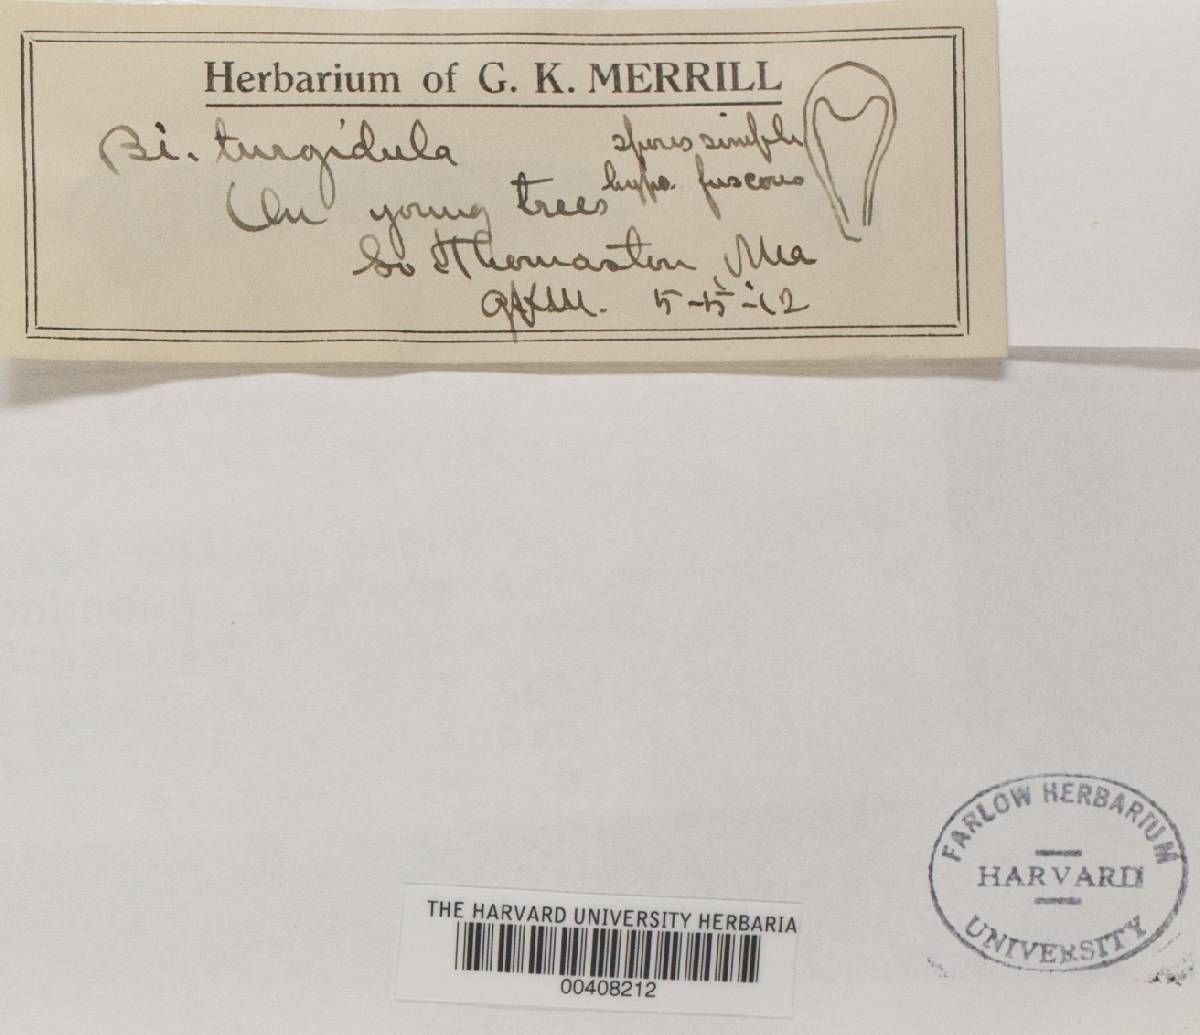 Herbarium of G. K. MERRILL
Bi. turgidula
spores simple
hypo. fuscous
On young trees
So Thomaston, Me
GKM. 5-5-12
FARLOW HERBARIUM
HARVARD
UNIVERSITY
THE HARVARD UNIVERSITY HERBARIA
00408212